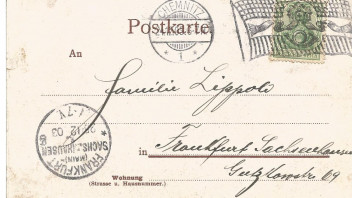 Postkarte
CHEMNITZ
* 1 *
An
Familie Lippold
in Frankfurt Sachsenhausen
Gutzkowstr 69
Wohnung
(Strasse u. Hausnummer.)
FRANKFURT
SACHSENHAUSEN
(MAIN)
12 03